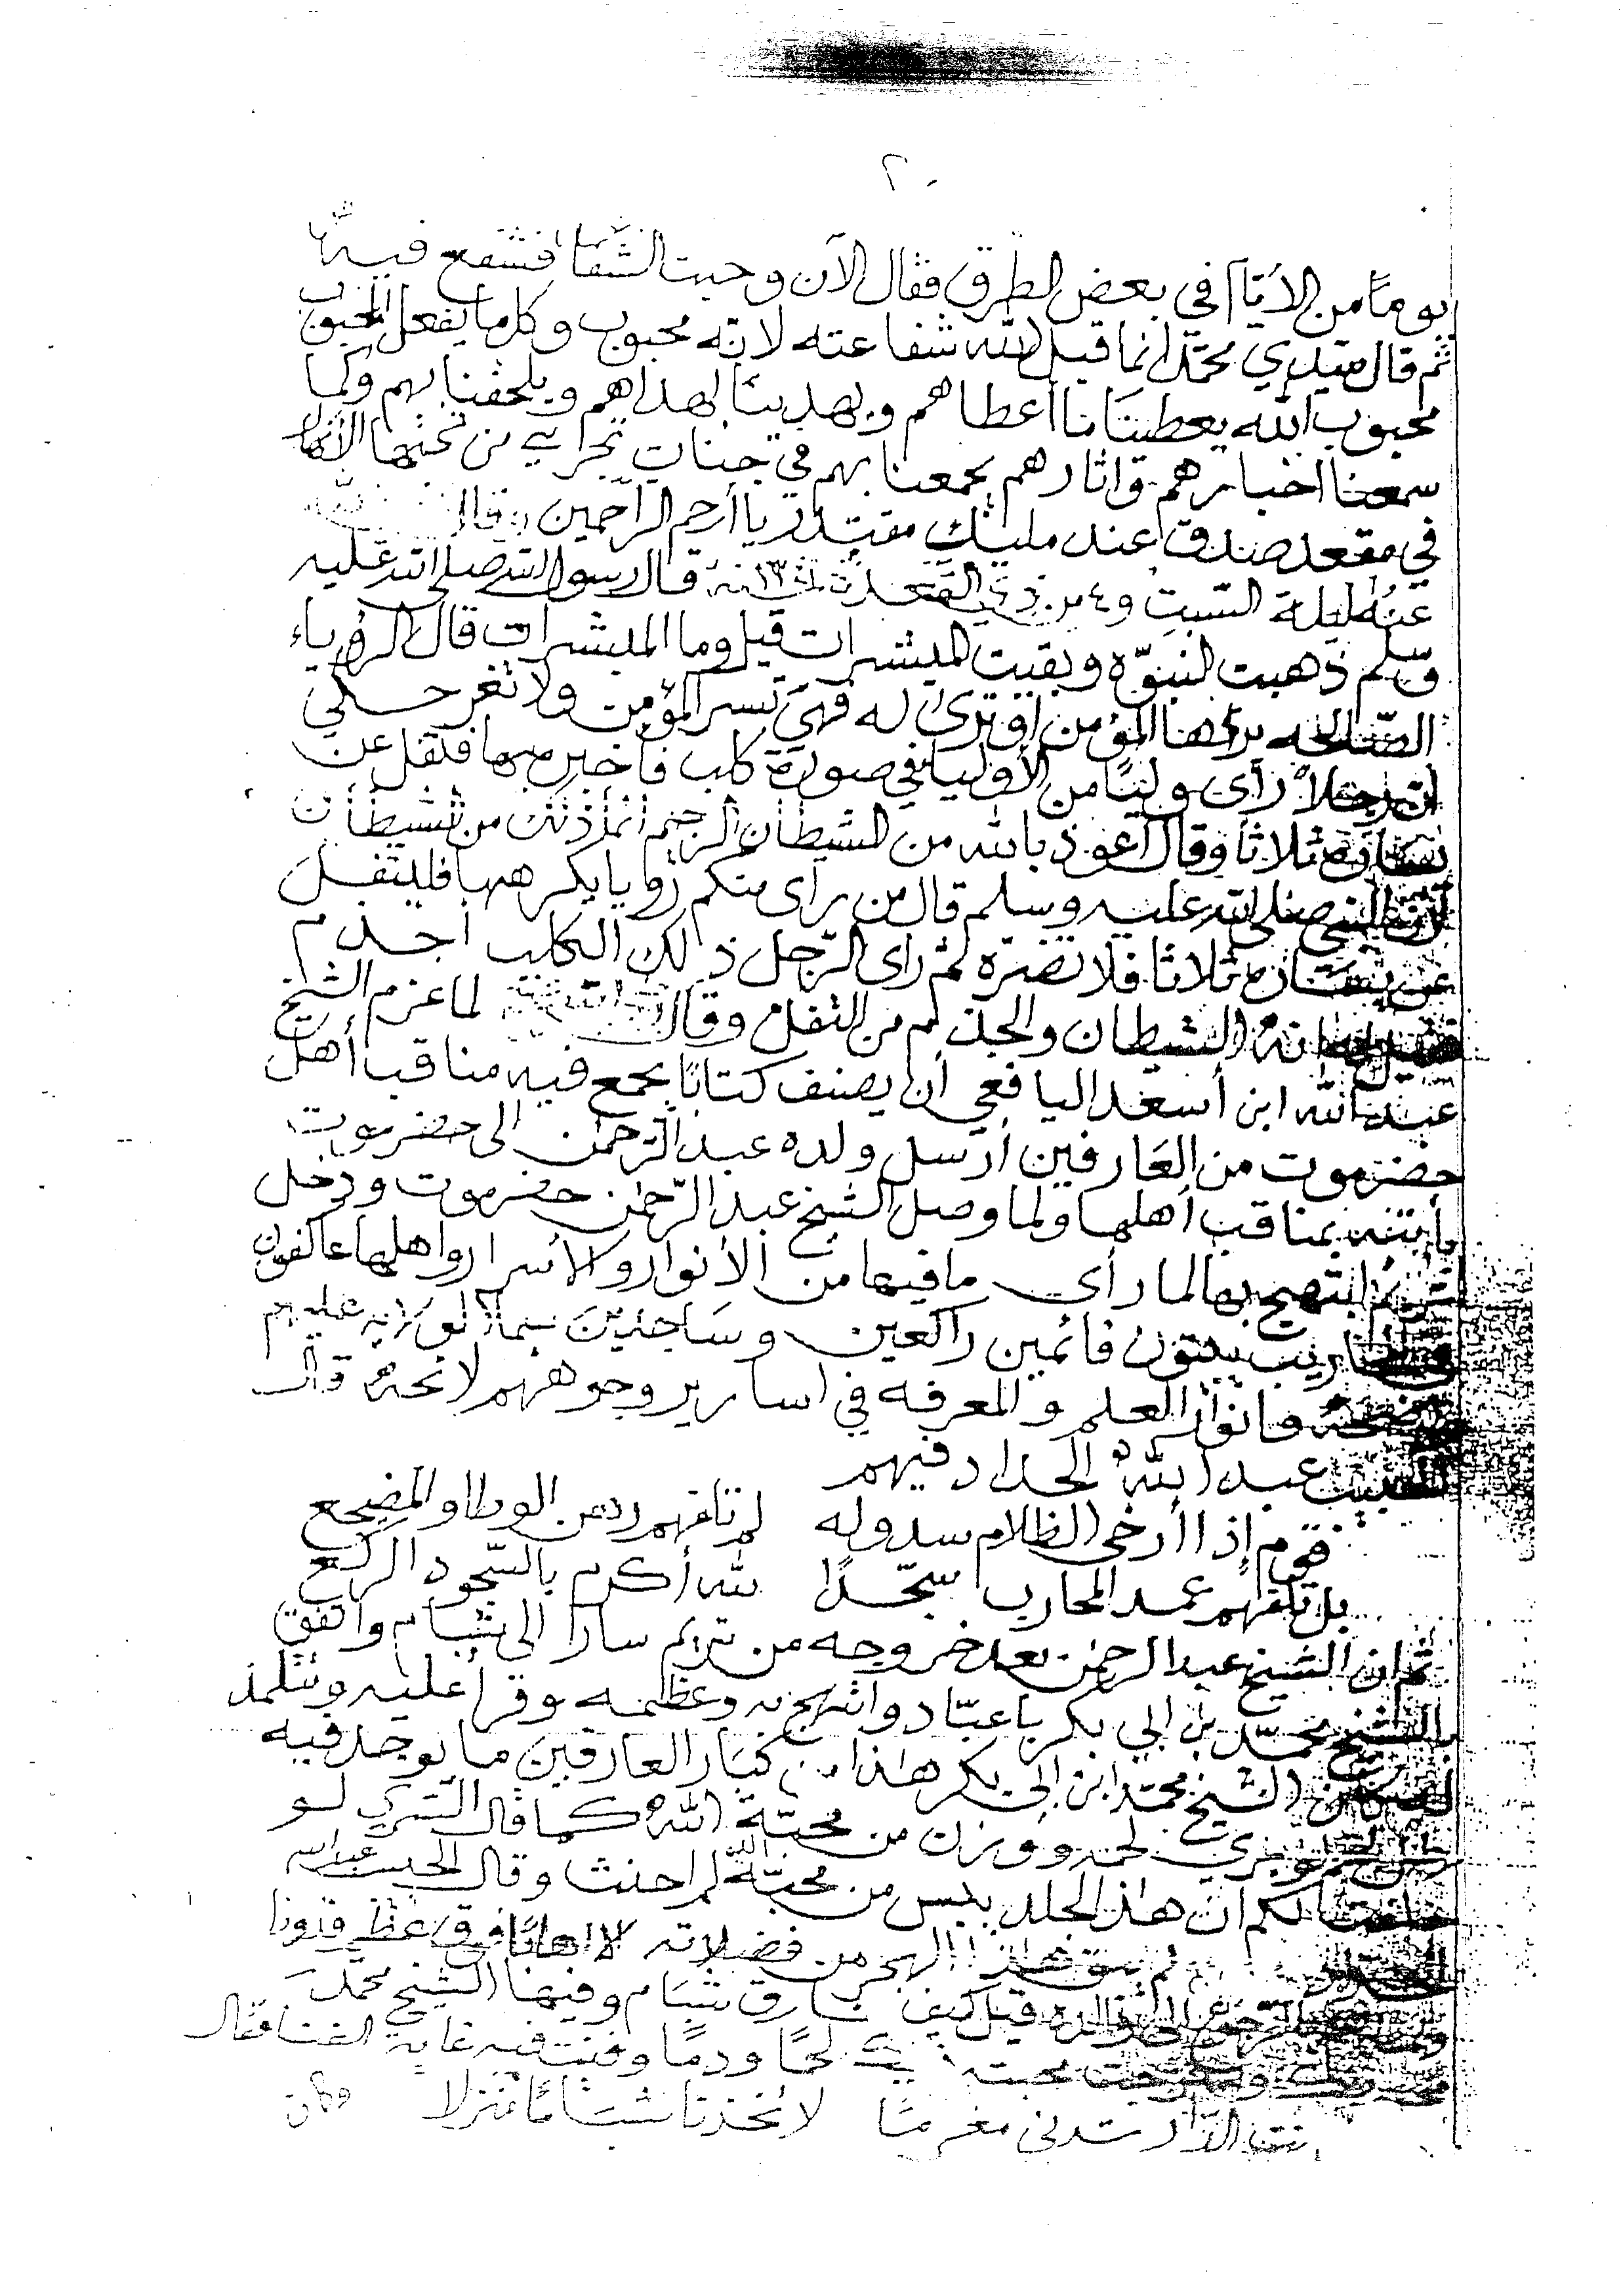 ٢٠
يومًا من الأيّام في بعض الطرق فقال الآن وجبت الشّفاعة فشفع فيه
ثم قال سيدي محمّد انما قبل الله شفاعته لانّه محبوب وكل ما يفعل المحبوب
محبوب الله يعطينا ما أعطاهم ويهدينا بهداهم ويلحقنا بهم وكما
سمعنا اخبارهم واثارهم يجمعنا بهم في جنات تجري من تحتها الأنهار
في مقعد صدق عند مليك مقتدر يا أرحم الراحمين وقال رضي الله
عنه ليلة السبت و٤ من ذي القعدة سنة قال رسول الله صلى الله عليه
وسلم ذهبت النبوّه وبقيت المبشرات قيل وما المبشرات قال الرؤياء
الصّالحه يراها المؤمن او ترى له فهي تسر المؤمن ولا تغر حكي
ان رجلاً رأى وليًا من الأوليا في صورة كلب فأخبر بها فتفل عن
يساره ثلاثا وقال أعوذ بالله من الشيطان الرجيم من الشيطان
لأن النبي صلى الله عليه وسلم قال من رأى منكم رؤيا يكرهها فليتفل
عن يساره ثلاثا فلا تضرّه ثم رأى الرّجل ذلك الكلب أجذم
فقيل له انه الشيطان والجذم من التفل وقال رضي الله عنه لما عزم الشيخ
عبد الله ابن أسعد اليافعي أن يصنف كتابًا يجمع فيه مناقب أهل
حضرموت من العارفين أرسل ولده عبد الرحمن الى حضرموت
يأتيه بمناقب أهلها ولما وصل الشيخ عبد الرّحمن حضرموت ودخل
تريم ابتهج بها لما رأى ما فيها من الأنوار والأسرار واهلها عاكفون
في المحاريب يبيتون قائمين راكعين وساجدين سيما الولاية عليهم
واضحة وانوار العلم والمعرفه في اسارير وجوههم لائحة قال
الحبيب عبد الله الحداد فيهم
قوم إذا أرخى الظلام سدوله لم تلفهم رهن الوطا والمضجع
بل تلفهم عمد المحارب سجّدًا لله أكرم بالسّجود الركع
ثم ان الشيخ عبد الرحمن بعد خروجه من تريم سار الى شبام واتفق
بالشيخ محمّد بن ابي بكر باعبّاد وابتهج به وعظمه وقرأ عليه وتتلمذ
له وكان الشيخ محمّد ابن ابي بكر هذا من كبار العارفين ما يوجد فيه
لحمه ووزن من محبّة الله كما قال السّري لو
حلفت لكم ان هذا الجلد يبس من محبّة الله لم احنث وقال الحبيب عبد الله
الحداد لم يبق هذا الهجر من فضلاته الا اهابًا فوق عظم
قيل كيف نفارق شبام وفيها الشيخ محمد
محبته لحمًا ودمًا وفنيت فيه غاية الفنا فقال
الدّار تدني مغرمًا لا تخذنا شبامًا منزلا وكان